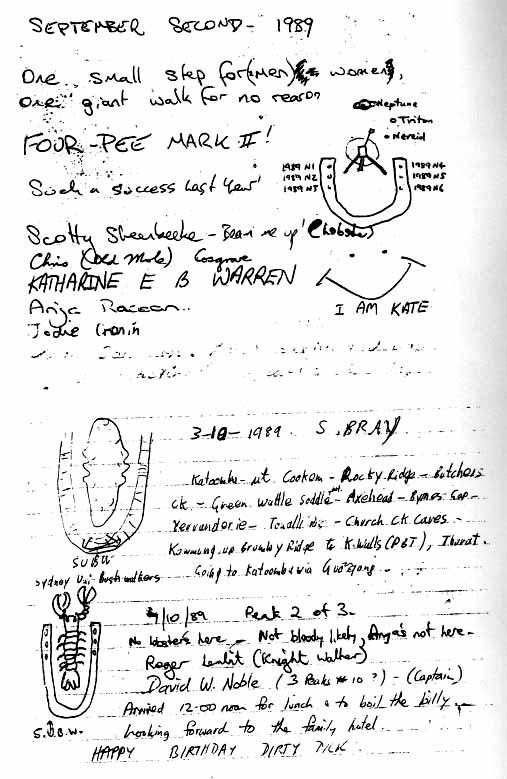 SEPTEMBER SECOND - 1989
One small step for (men) women,
one giant walk for no reason
Neptune
Triton
Nereid
FOUR-PEE MARK II!
1989 N1
1989 N2
1989 N3
1989 N4
1989 N5
1989 N6
Such a success last Year!
Scotty - Beam me up! (Lobster)
Chris (Old Mole) Cosgrove
KATHARINE E B WARREN
Anja
Jodie Cronin
I AM KATE
3-10-1989 S. BRAY
Katoomba - Mt. Cookem - Rocky Ridge - Butchers
ck - Green Wattle Saddle - Axehead - Byrnes Gap -
Yerranderie - - Church Ck Caves -
Kowmung up Brumby Ridge to K. Walls (PBT), Thurat.
Going to Katoomba via Guouogang.
SUBW
Sydney Uni Bushwalkers
4/10/89 Peak 2 of 3.
No lobsters here - Not bloody likely, Anja's not here.
Roger (Knight Walker)
David W. Noble (3 Peaks # 10?) - (Captain)
Arrived 12-00 noon for lunch & to boil the billy.
Looking forward to the family hotel.
S.U.B.W.
HAPPY BIRTHDAY DIRTY DICK.